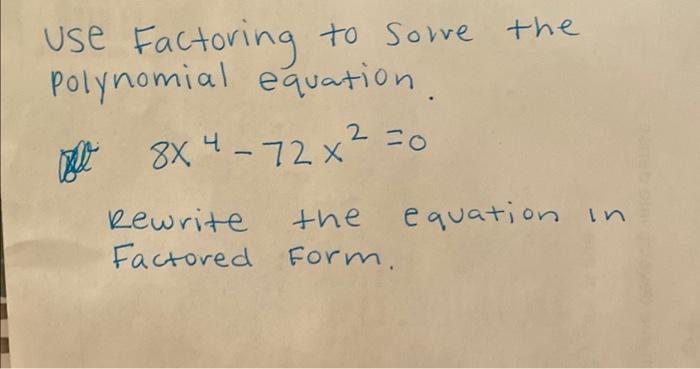 Use Factoring to Solve the
polynomial equation.
8x⁴ - 72x² = 0
Rewrite the equation in
Factored Form.